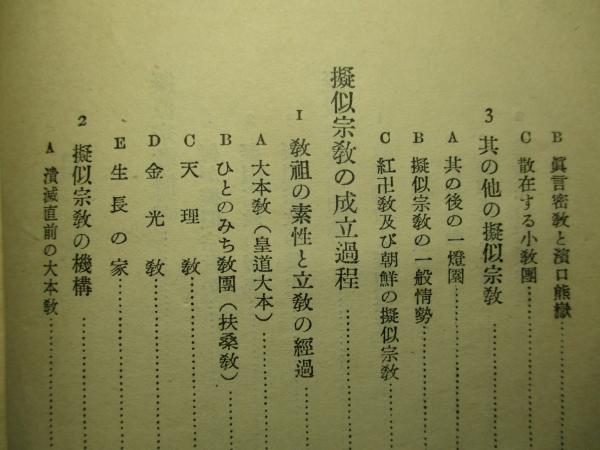 B 眞言密敎と濱口熊嶽
C 散在する小敎團
3 其の他の擬似宗敎
A 其の後の一燈園
B 擬似宗敎の一般情勢
C 紅卍敎及び朝鮮の擬似宗敎
擬似宗敎の成立過程
1 敎祖の素性と立敎の經過
A 大本敎(皇道大本)
B ひとのみち敎團(扶桑敎)
C 天理敎
D 金光敎
E 生長の家
2 擬似宗敎の機構
A 潰滅直前の大本敎